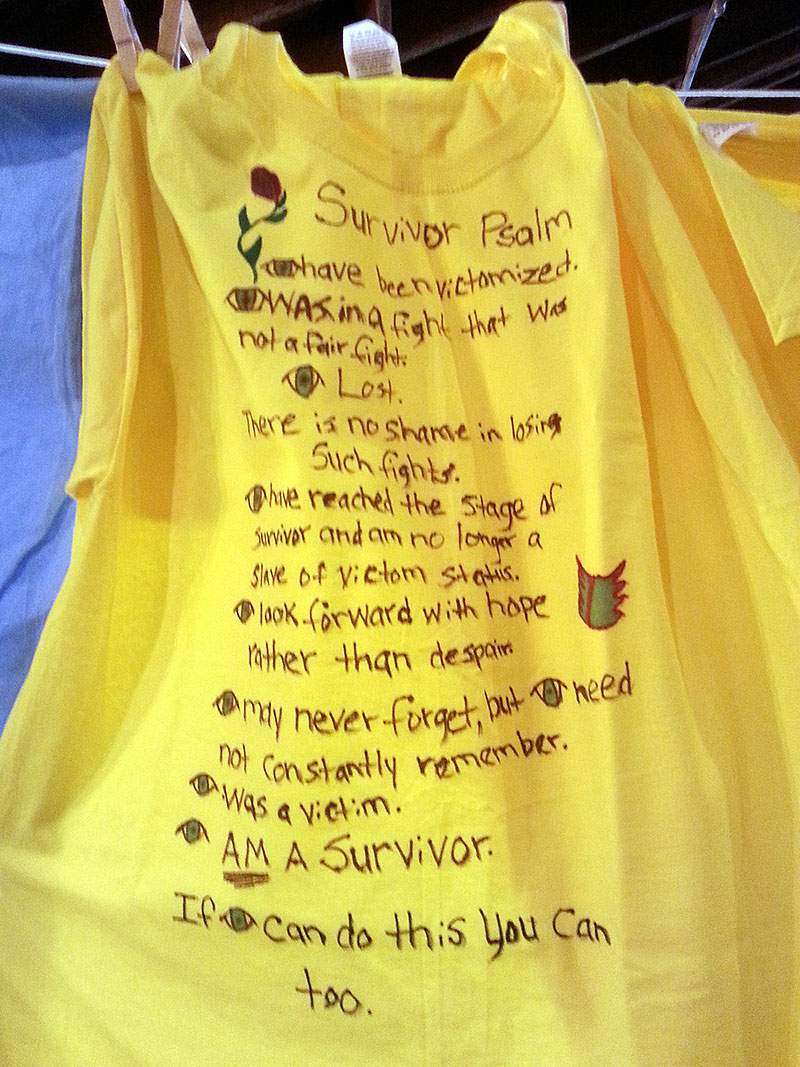 Survivor Psalm
have been victomized.
was in a fight that was
not a fair fight.
Lost.
There is no shame in losing
Such fights.
have reached the stage of
survivor and am no longer a
slave of victom statis.
look forward with hope
rather than despair.
may never forget, but need
not constantly remember.
Was a victim.
AM A Survivor.
If can do this You Can
too.